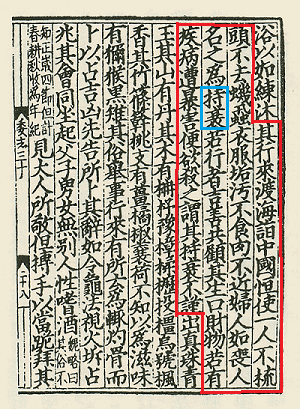 浴以如練沐其行來渡海詣中國恒使一人不梳
頭不去蟣蝨衣服垢污不食肉不近婦人如喪人
名之爲持衰若行者吉善共顧其生口財物若有
疾病遭暴害便欲殺之謂其持衰不謹出真珠青
玉其山有丹其木有柟杼豫樟楺櫪投橿烏號楓
香其竹篠簳桃支有薑橘椒蘘荷不知以爲滋味
有獮猴黑雉其俗舉事行來有所云爲輒灼骨而
卜以占吉凶先告所卜其辭如令龜法視火坼占
兆其會同坐起父子男女無別人性嗜酒 魏略曰其俗不
知正歲四節但計春耕秋收爲年紀 見大人所敬但搏手以當跪拜其
魏志三十
二十八